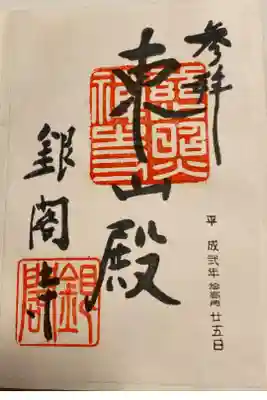 参拝
東山殿
慈照
禅寺
平成弐年 廿五日
銀閣寺
銀閣